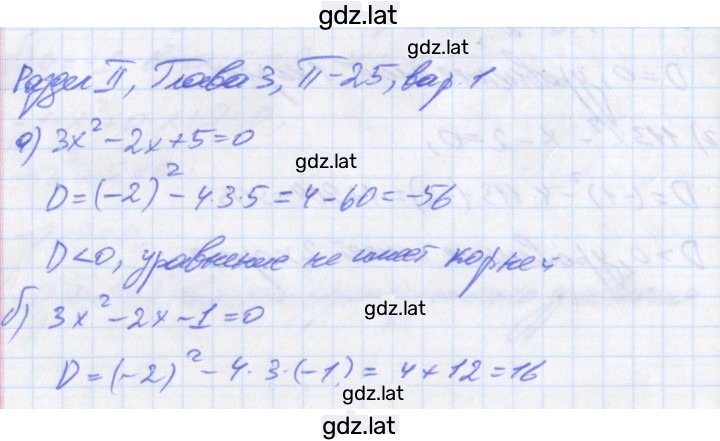 gdz.lat
gdz.lat
Раздел II, Глава 3, П-25, вар. 1
а) 3x² - 2x + 5 = 0
gdz.lat
D = (-2)² - 4·3·5 = 4 - 60 = -56
D < 0, уравнение не имеет корней
б) 3x² - 2x - 1 = 0
gdz.lat
D = (-2)² - 4·3·(-1) = 4 + 12 = 16
gdz.lat
gdz.lat